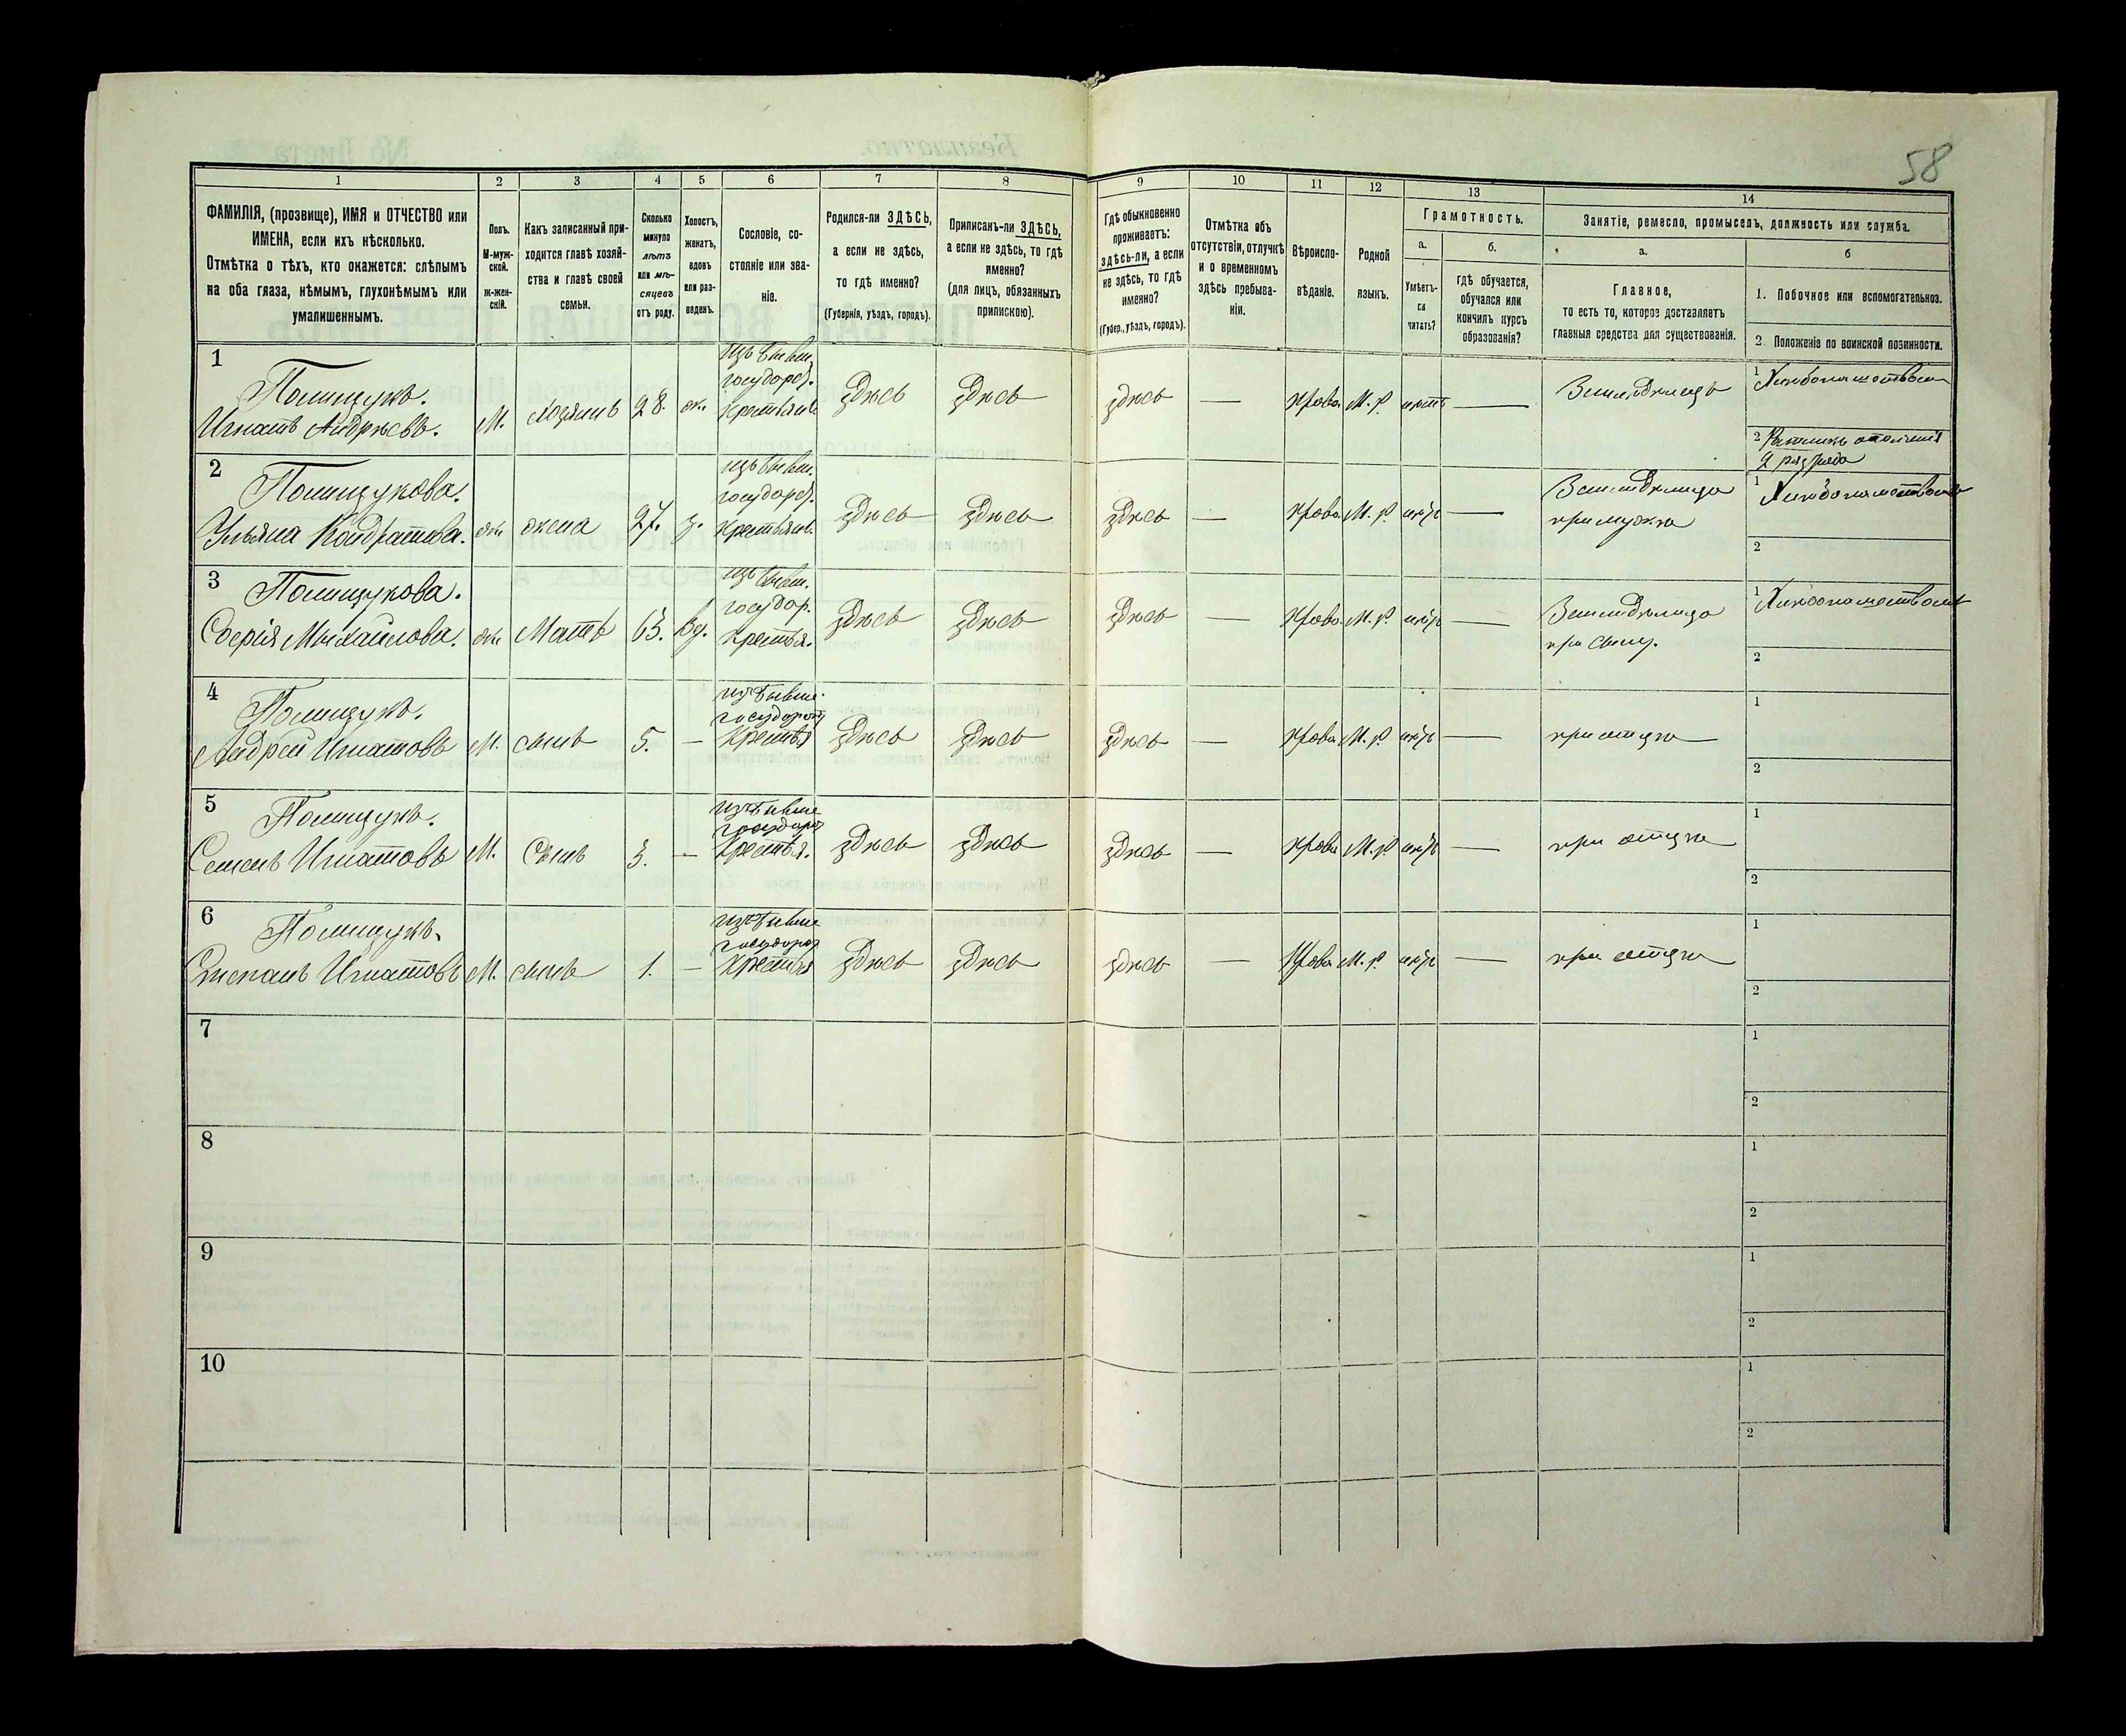 58
1 2 3 4 5 6 7 8 9 10 11 12 13 14
ФАМИЛІЯ, (прозвище), ИМЯ и ОТЧЕСТВО или
ИМЕНА, если ихъ нѣсколько.
Отмѣтка о тѣхъ, кто окажется: слѣпымъ
на оба глаза, нѣмымъ, глухонѣмымъ или
умалишеннымъ.
Полъ.
М-муж-
ской.
Ж-жен-
скій.
Какъ записанный при-
ходится главѣ хозяй-
ства и главѣ своей
семьи.
Сколько
минуло
лѣтъ
или мѣ-
сяцевъ
отъ роду.
Холостъ,
женатъ,
вдовъ
или раз-
веденъ.
Сословіе, со-
стояніе или зва-
ніе.
Родился-ли ЗДѢСЬ,
а если не здѣсь,
то гдѣ именно?
(Губернія, уѣздъ, городъ).
Приписанъ-ли ЗДѢСЬ,
а если не здѣсь, то гдѣ
именно?
(для лицъ, обязанныхъ
припискою).
Гдѣ обыкновенно
проживаетъ:
здѣсь-ли, а если
не здѣсь, то гдѣ
именно?
(Губер., уѣздъ, городъ).
Отмѣтка объ
отсутствіи, отлучкѣ
и о временномъ
здѣсь пребыва-
ніи.
Вѣроиспо-
вѣданіе.
Родной
языкъ.
Грамотность.
а.
Умѣетъ-
ли
читать?
б.
гдѣ обучается,
обучался или
кончилъ курсъ
образованія?
Занятіе, ремесло, промыселъ, должность или служба.
а.
Главное,
то есть то, которое доставляетъ
главныя средства для существованія.
б
1. Побочное или вспомогательное.
2. Положеніе по воинской повинности.
1
Полищукъ.
Игнатъ Андрѣевъ.
М.
хозяинъ
28.
ж.
изъ бывш.
государс.
крестьянъ
здѣсь
здѣсь
здѣсь
—
Право. М. Р. нѣтъ —
Земледѣлецъ
1 Хлѣбопашествомъ
2 Ратникъ ополченія
2 разряда
2
Полищукова.
Ульяна Кондратова.
ж.
жена
27.
з.
изъ бывш.
государс.
крестьянъ.
здѣсь
здѣсь
здѣсь
—
Право. М. Р. нѣтъ —
Земледѣлица
при мужѣ
1 Хлѣбопашествомъ
2
3
Полищукова.
Софія Михайлова.
ж.
Мать
63.
вд.
изъ бывш.
государ.
крестья.
здѣсь
здѣсь
здѣсь
—
Право. М. Р. нѣтъ —
Земледѣлица
при сыну.
1 Хлѣбопашествомъ
2
4
Полищукъ.
Андрей Игнатовъ
М.
сынъ
5.
—
изъ бывш.
государст
крестья
здѣсь
здѣсь
здѣсь
—
Право. М. Р. нѣтъ —
при отцѣ
1
2
5
Полищукъ.
Семенъ Игнатовъ
М.
Сынъ
3.
—
изъ бывш
государс
крестья.
здѣсь
здѣсь
здѣсь
—
Право. М. Р. нѣтъ —
при отцѣ
1
2
6
Полищукъ.
Степанъ Игнатовъ
М.
сынъ
1.
—
изъ бывш
государс
крестья
здѣсь
здѣсь
здѣсь
—
Право. М. Р. нѣтъ —
при отцѣ
1
2
7
1
2
8
1
2
9
1
2
10
1
2